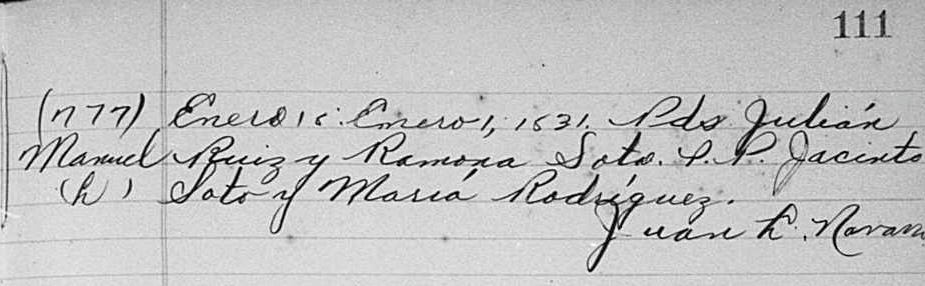 111
(n 77) Enero 15. Enero 1, 1831. Pds Julián
Manuel Ruiz y Ramona Soto. P. P. Jacinto
(h) Soto y María Rodríguez.
Juan L. Navarro